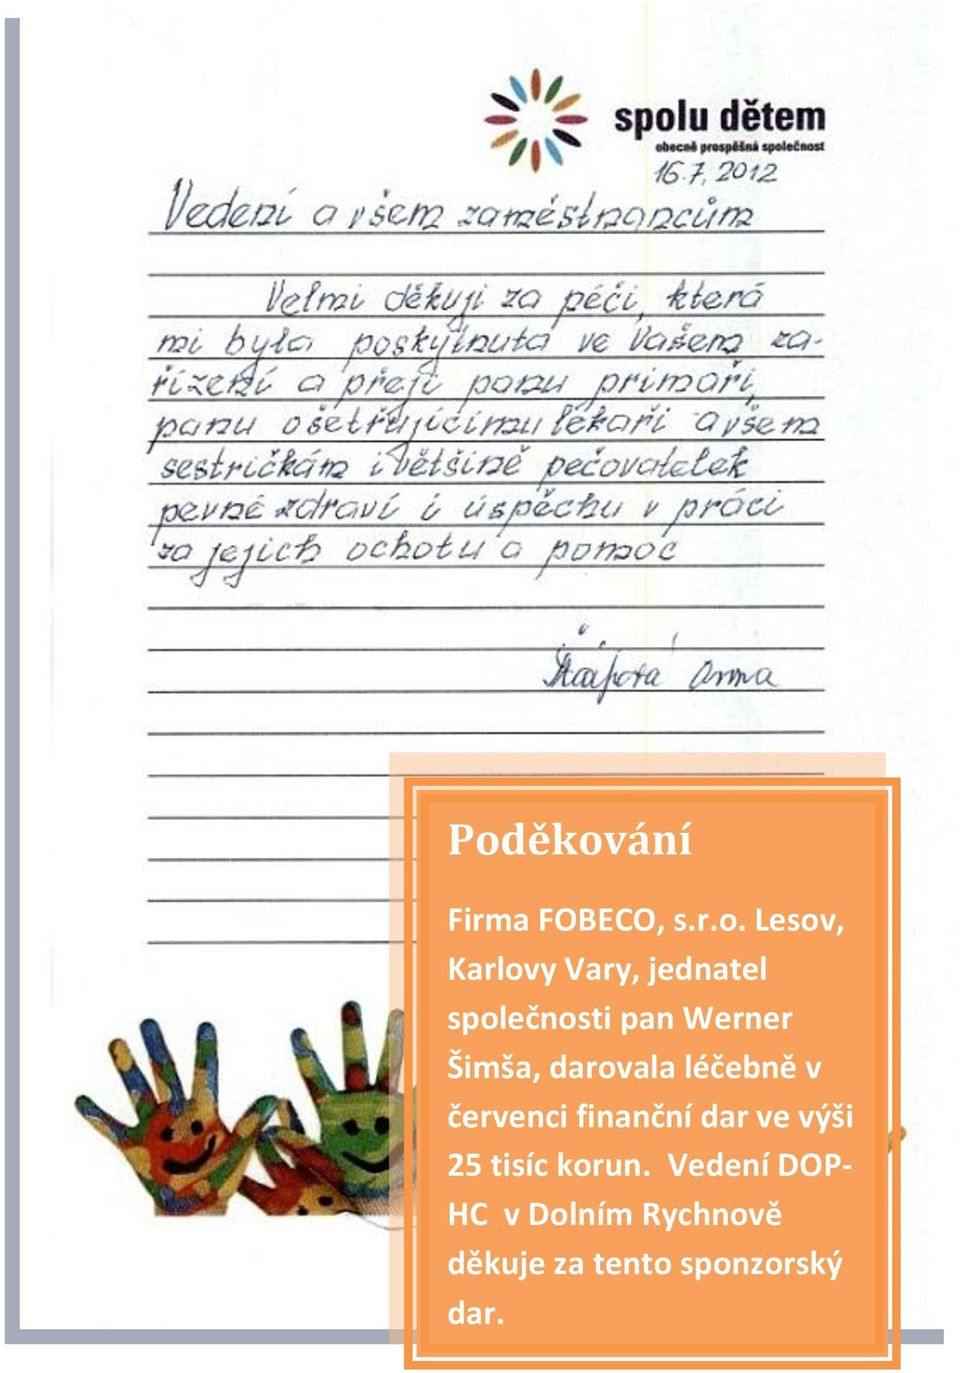 spolu dětem
obecně prospěšná společnost
16.7.2012
Vedení a všem zaměstnancům
Velmi děkuji za péči, která
mi byla poskytnuta ve Vašem za-
řízení a přeji panu primáři,
panu ošetřujícímu lékaři a všem
sestričkám i většině pečovatelek
pevné zdraví i úspěchu v práci
za jejich ochotu a pomoc
Anna
Poděkování
Firma FOBECO, s.r.o. Lesov,
Karlovy Vary, jednatel
společnosti pan Werner
Šimša, darovala léčebně v
červenci finanční dar ve výši
25 tisíc korun. Vedení DOP-
HC v Dolním Rychnově
děkuje za tento sponzorský
dar.